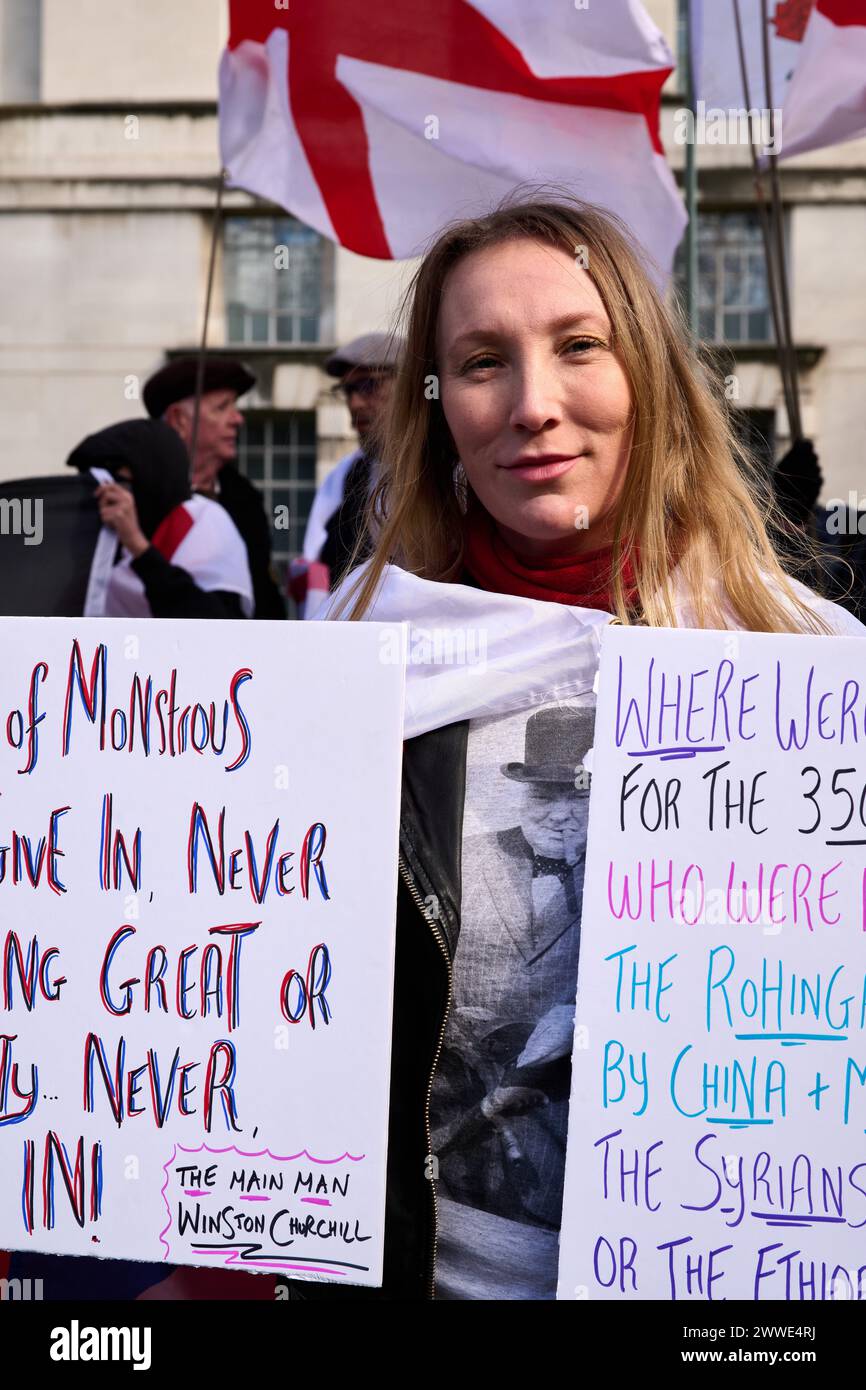 of Monstrous
Give In, Never
ing Great or
ty... Never,
In!
The Main Man
Winston Churchill
Where Wer
for the 350
who were
the Rohing
by China +
the Syrians
or the Ethio
alamy
Image ID: 2WWE4RJ
www.alamy.com